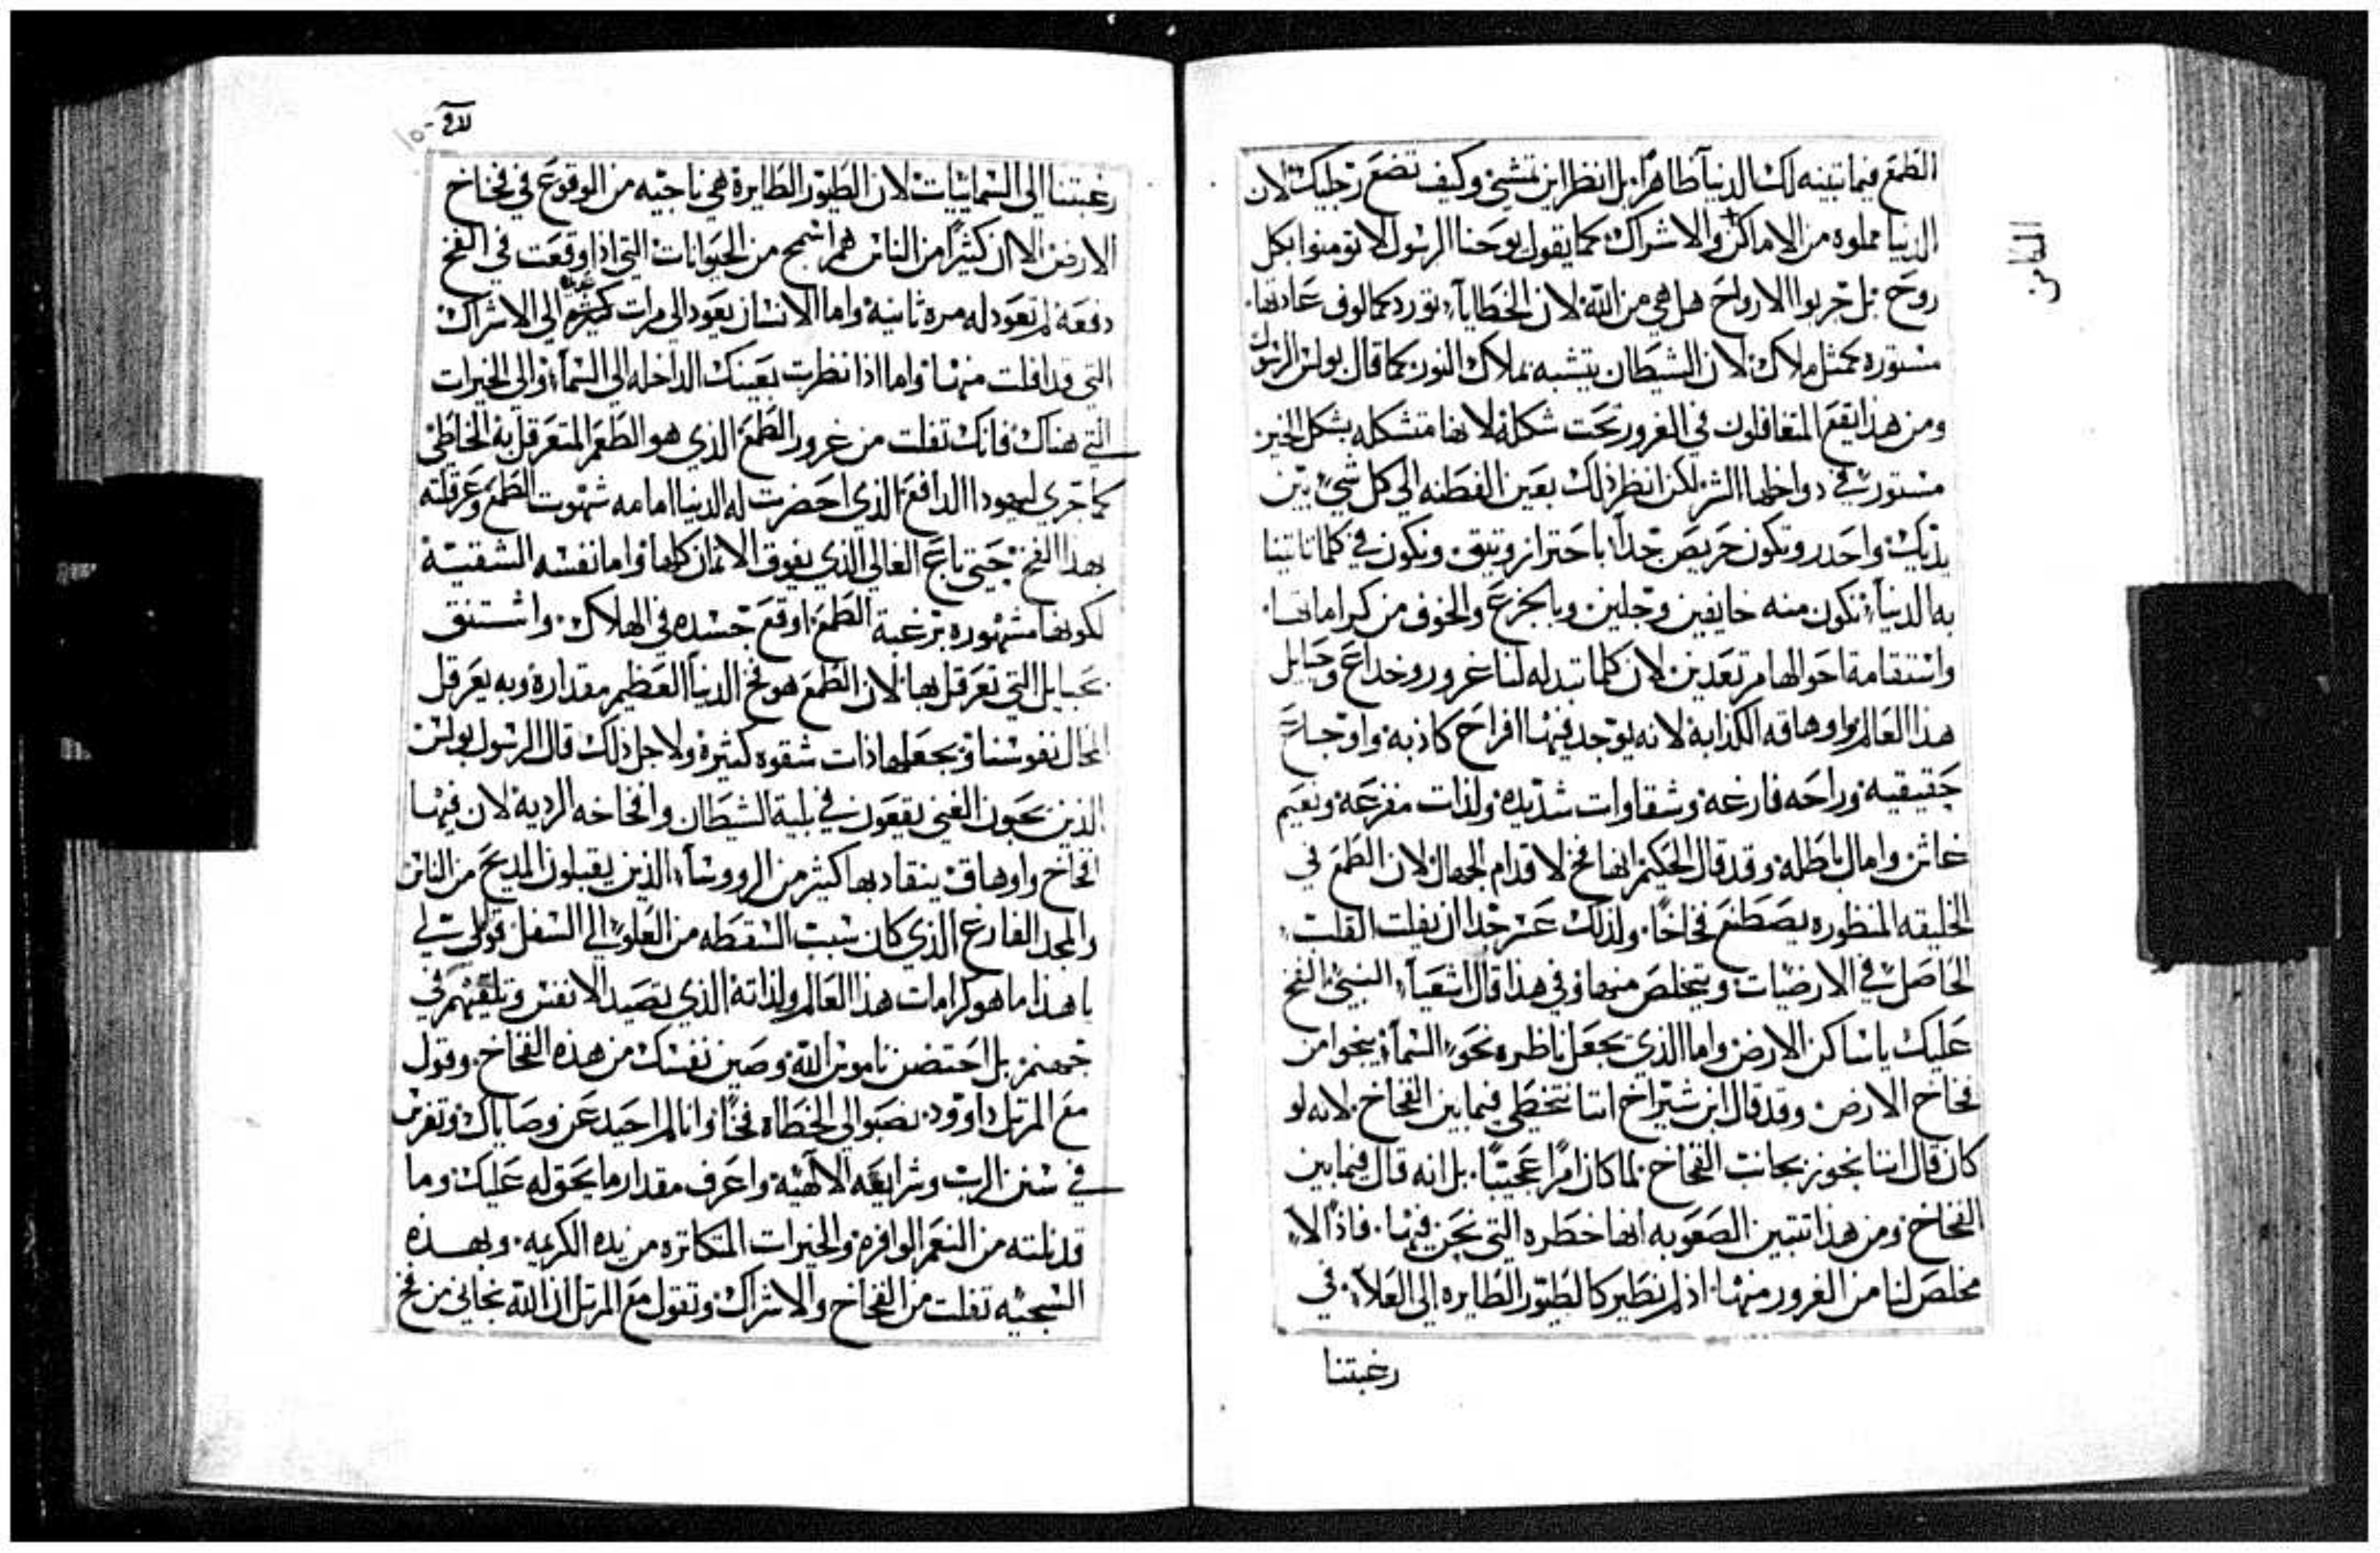 الطمع فيما تبينه لك الدنيا ظاهرًا. بل انظر اين تمشي وكيف تضع رجليك لان
الدنيا مملوه من الاماكن والاشراك كما يقول يوحنا الرسول لا تومنوا بكل
روح بل جربوا الارواح هل هي من الله لان الخطايا تورد كمالوف عادتها.
مستوره كمثل ملاك لان الشيطان يتشبه بملاك النور كما قال بولس الرسول
ومن هذا يقع المتغافلون في الغرور تحت شكله لانها متشكله بشكل الخير
مستور في دواخلها الشر لكن انظر ذلك بعين الفطنه الي كل شي بين
يديك واحدر وتكون حريص جدًا باحتراز وتيق وتكون في كلما تاتينا
به الدنيا نكون منه خايفين وجلين وبالجزع والخوف من كراماتها.
واستقامة احوالها مرتعدين لان كلما تبدله لنا غرور وخداع وحبايل
هذا العالم واوهاقه الكذابة لانه يوجد فيها افراح كاذبه واوجاع
حقيقيه وراحه فارغه وشقاوات شديده ولذات مفزعه ونعيم
خاسر وامال باطله وقد قال الحكيم انها فخ لاقدام الجهال لان الطمع في
الخليقه المنظوره يصطنع فخاخًا. ولذلك عسر جدا ان يفلت القلب
الحاصل في الارضيات ويتخلص منها وفي هذا قال اشعيا النبي الفخ
عليك يا ساكن الارض واما الذي يجعل ناظره نحو السما ينجوا من
فخاخ الارض وقد قال ابن شيراخ اننا نتخطي فيما بين الفخاخ. لانه لو
كان قال اننا نجوز بجانب الفخاخ لما كان امرًا عجيبًا. بل انه قال فيما بين
الفخاخ ومن هذا تتبين الصعوبه انها خطره التي نحن فيها. فاذًا لا
مخلص لنا من الغرور منها. اذ لم نطير كالطيور الطايره الي العلا. في
رغبتنا
الثامن
رغبتنا الي السماييات لان الطيور الطايرة هي ناجيه من الوقوع في فخاخ
الارض الا ان كثيرًا من الناس هم اسمج من الحيوانات التي اذا وقعت في الفخ
دفعة لم تعود له مره ثانية واما الانسان يعود الي مرات كثيره الي الاشراك
التي قد افلت منها واما اذا نظرت بعينك الداخله الي السما والي الخيرات
التي هناك فانك تفلت من غرور الطمع الذي هو الطعم المتعرقل به الخاطي
كما جري ليهودا الدافع الذي احضرت له الدنيا امامه شهوت الطمع وعرقلته
بهذا الفخ حتي باع الغالي الذي يفوق الاثمان كلها واما نفسه الشقية
لكونها مشهوره برغبة الطمع اوقع جسده في الهلاك. واشتنق
بحبايل التي تعرقل بها لان الطمع هو فخ الدنيا العظيم مقداره وبه يعرقل
المحال نفوسنا ويجعلها ذات شقوه كثيرة ولاجل ذلك قال الرسول بولس
الذين يحبون الغني يقعون في بلية الشيطان وافخاخه الرديه لان فيها
افخاخ واوهاق ينقاد بها كثير من الرووسا الذين يقبلون المديح من الناس
والمجد الفارغ الذي كان سبب السقطه من العلو الي السفل قولي لي
يا هذا ما هو كرامات هذا العالم ولذاته الذي تصيد الانفس وتلقيهم في
جهنم بل احتضن ناموس الله وصين نفسك من هذه الفخاخ. وقول
مع المرتل داوود نصبوا لي الخطاه فخًا وانا لم احيد عن وصاياك وتفرس
في سنن الرب وشرايعه الالهية واعرف مقدار ما يحق له عليك وما
قد نلته من النعم الوافره والخيرات المتكاتره من يده الكريمه. وبهذه
السجيه تفلت من الفخاخ والاشراك وتقول مع المرتل ان الله نجاني من فخ